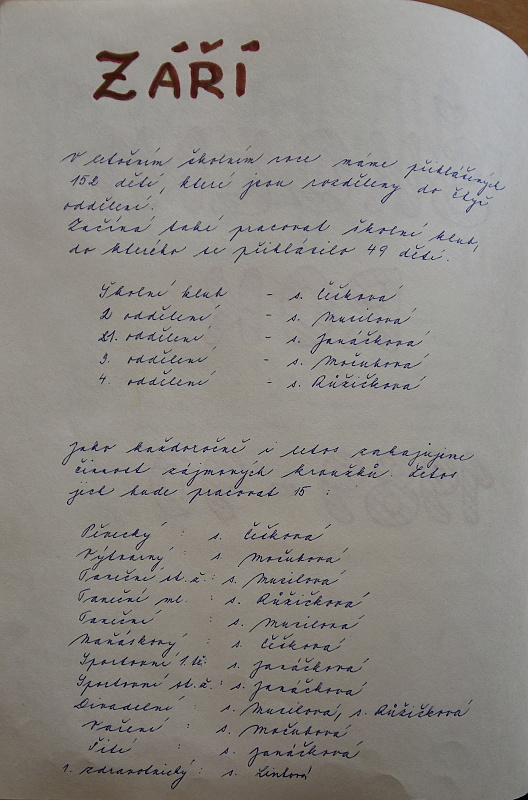 ZÁŘÍ
V letošním školním roce máme přihlášených
152 dětí, které jsou rozděleny do čtyř
oddělení.
Začíná také pracovat školní klub,
do kterého se přihlásilo 49 dětí.
Školní klub - s. Číčková
2 oddělení - s. Musilová
21. oddělení - s. Janáčková
3. oddělení - s. Močubová
4. oddělení - s. Růžičková
Jako každoročně i letos zahajujeme
činnost zájmových kroužků. Letos
jich bude pracovat 15 :
Pěvecký : s. Číčková
Výtvarný : s. Močubová
Taneční st. ž. : s. Musilová
Taneční ml. : s. Růžičková
Taneční : s. Musilová
Maňáskový : s. Číčková
Sportovní 1. tř. s. Janáčková
Sportovní st. ž. : s. Janáčková
Divadelní : s. Musilová, s. Růžičková
Vaření : s. Močubová
Šití : s. Janáčková
1. zdravotnický : s. Lintová